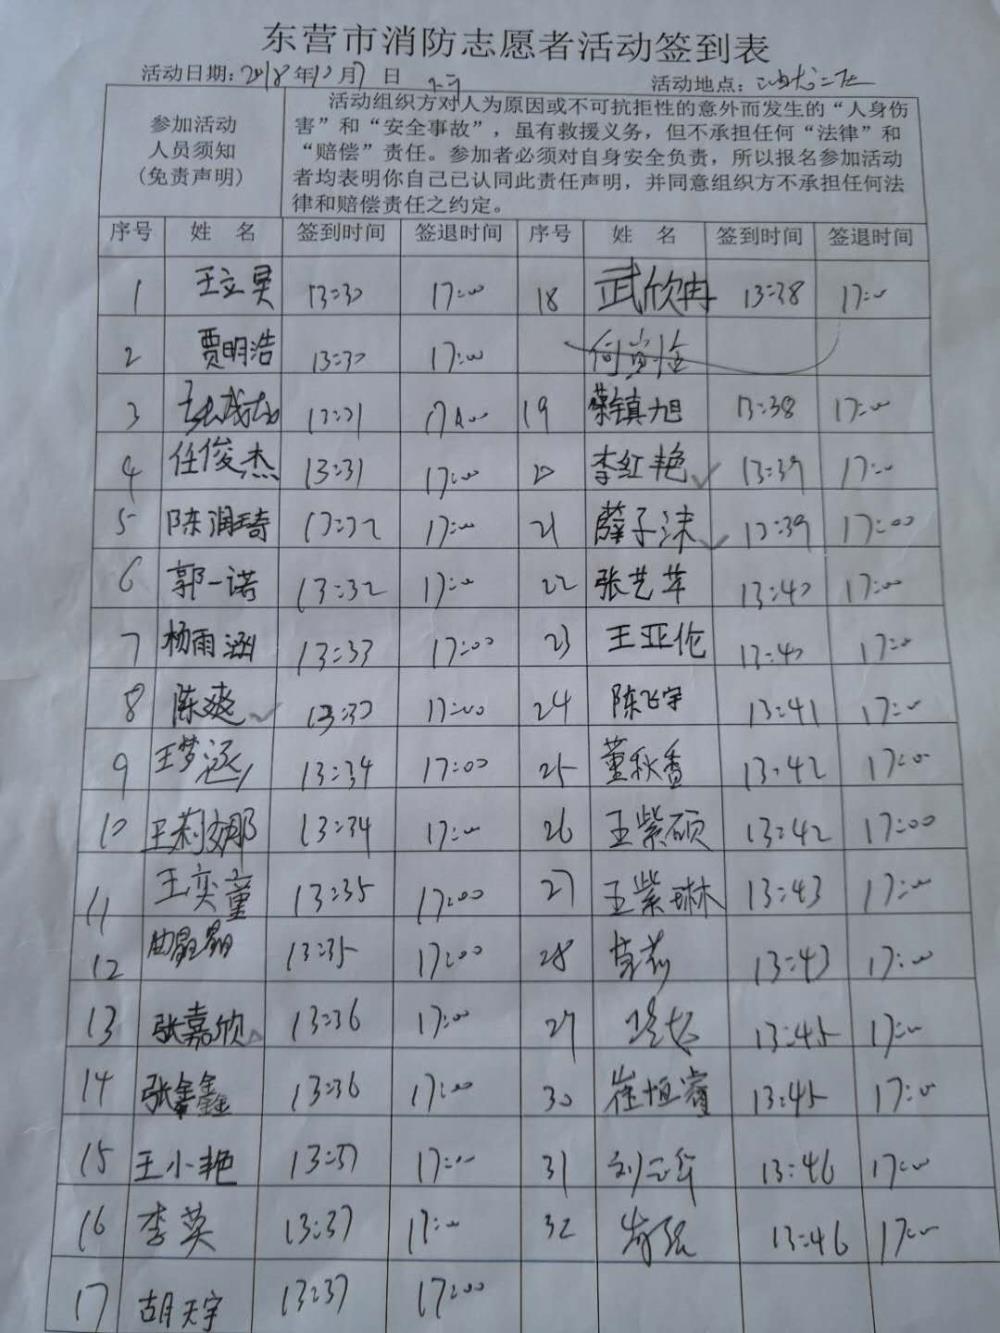 东营市消防志愿者活动签到表
活动日期：2018年10月7日 活动地点：
参加活动
人员须知
(免责声明)
活动组织方对人为原因或不可抗拒性的意外而发生的“人身伤
害”和“安全事故”，虽有救援义务，但不承担任何“法律”和
“赔偿”责任。参加者必须对自身安全负责，所以报名参加活动
者均表明你自己已认同此责任声明，并同意组织方不承担任何法
律和赔偿责任之约定。
序号 姓 名 签到时间 签退时间 序号 姓 名 签到时间 签退时间
1 王立昊 13:30 17:00 18 武欣冉 13:38 17:00
2 贾明浩 13:30 17:00
3 13:31 17:00 19 蔡镇旭 13:38 17:00
4 任俊杰 13:31 17:00 20 李红艳 13:39 17:00
5 陈润琦 13:32 17:00 21 薛子沫 13:39 17:00
6 郭一诺 13:32 17:00 22 张艺苹 13:40 17:00
7 杨雨涵 13:33 17:00 23 王亚伦 13:40 17:00
8 陈爽 13:33 17:00 24 陈飞宇 13:41 17:00
9 王梦涵 13:34 17:00 25 董秋香 13:42 17:00
10 王莉娜 13:34 17:00 26 王紫硕 13:42 17:00
11 王奕童 13:35 17:00 27 王紫琳 13:43 17:00
12 13:35 17:00 28 13:43 17:00
13 张嘉欣 13:36 17:00 29 13:45 17:00
14 张鑫鑫 13:36 17:00 30 崔恒睿 13:45 17:00
15 王小艳 13:37 17:00 31 13:46 17:00
16 李英 13:37 17:00 32 13:46 17:00
17 胡天宇 13:37 17:00